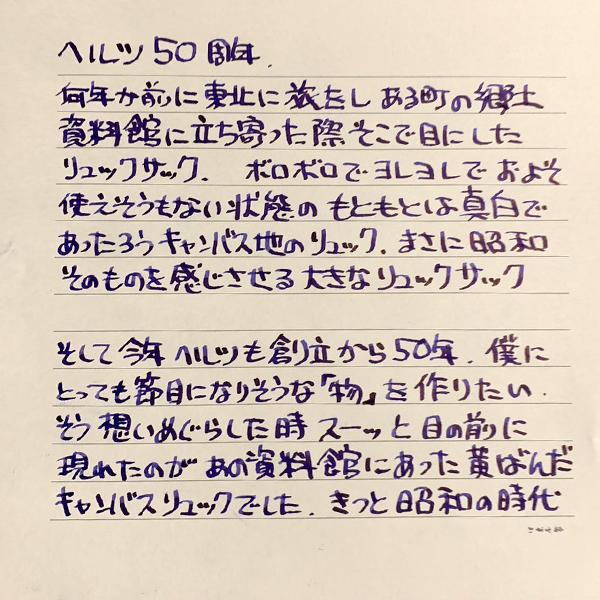 ヘルツ50周年.
何年か前に東北に旅をし ある町の郷土
資料館に立ち寄った際そこで目にした
リュックサック. ボロボロでヨレヨレで およそ
使えそうもない状態の もともとは真白で
あったろうキャンバス地のリュック. まさに昭和
そのものを感じさせる大きなリュックサック
そして今年 ヘルツも創立から50年. 僕に
とっても節目になりそうな「物」を作りたい.
そう想いめぐらした時 スーッと目の前に
現れたのが あの資料館にあった黄ばんだ
キャンバスリュックでした. きっと昭和の時代